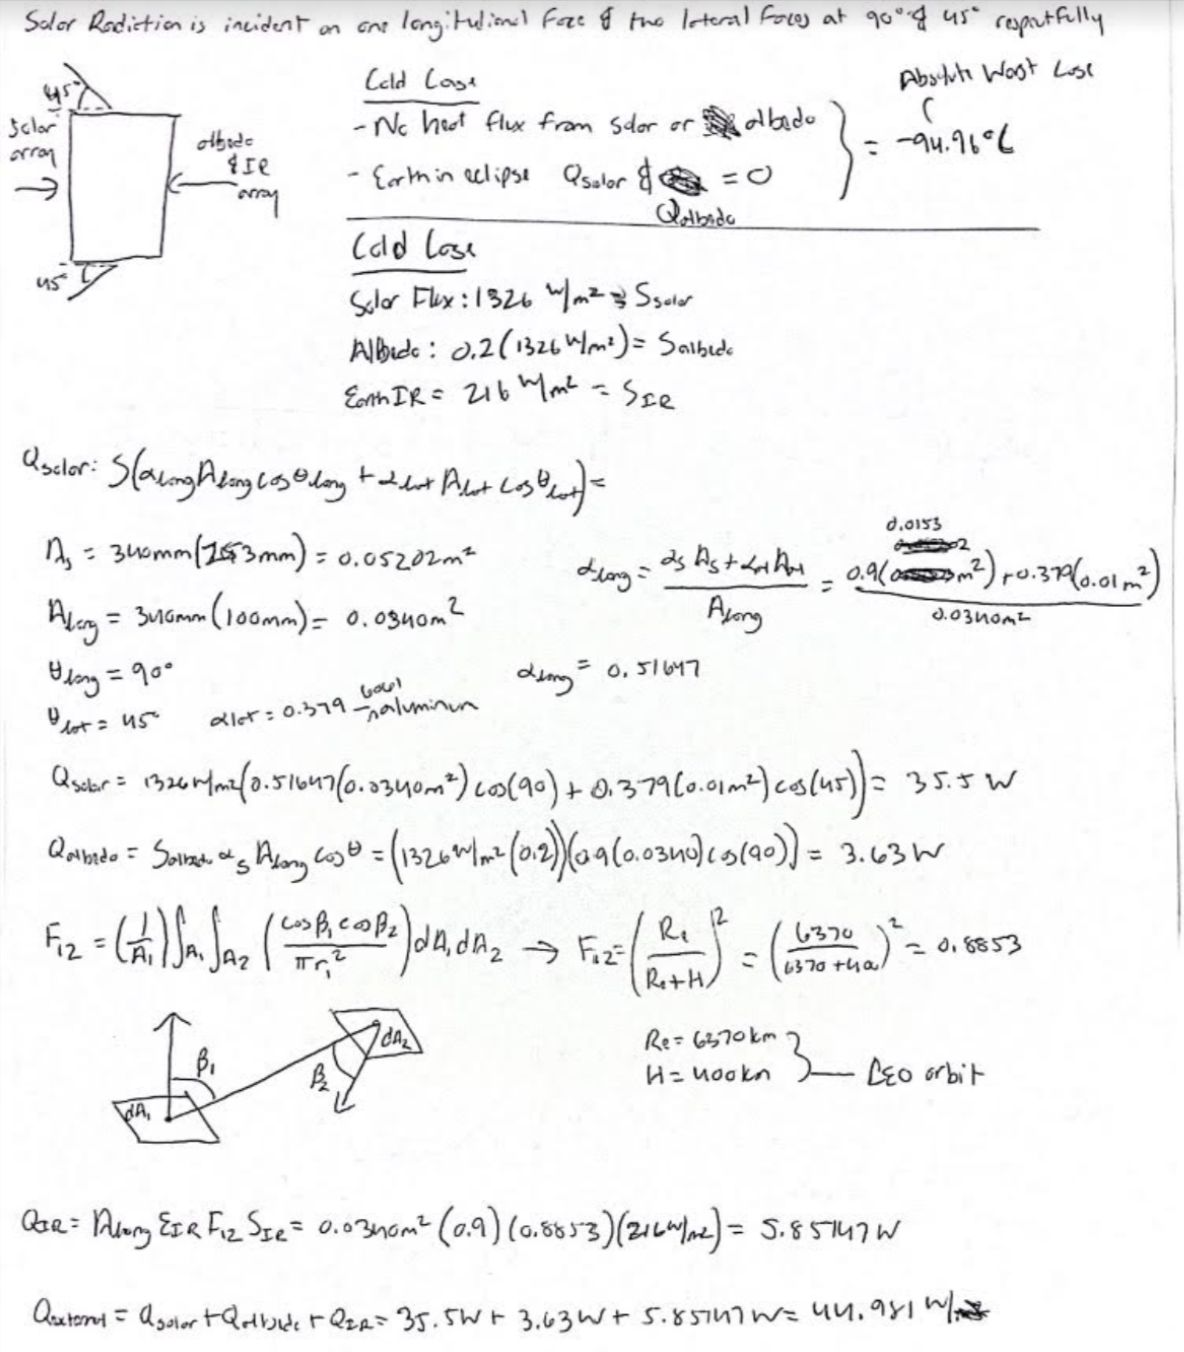 Solar Radiction is incident on one longitudional Face & two lateral Faces at 90° & 45° respectfully
45°
Solar array
albedo & IR array
45°
Cold Case
- No heat flux from solar or albedo
- Earth in eclipse Qsolar & Qalbedo = 0
Absolute Worst Case
= -94.96°C
Cold Case
Solar Flux: 1326 W/m² = Ssolar
Albedo: 0.2(1326 W/m²) = Salbedo
Earth IR = 216 W/m² = SIR
Qsolar: S(αlong Along cosθlong + αlat Alat cosθlat) =
As = 340mm(153mm) = 0.05202m²
αlong = (αs As + αAl AAl) / Along = (0.9(0.0153 m²) + 0.379(0.01m²)) / 0.0340m²
Along = 340mm(100mm) = 0.0340m²
θlong = 90°
αlong = 0.51647
θlat = 45° αlat = 0.379 6061 aluminum
Qsolar = 1326 W/m²(0.51647(0.0340m²)cos(90) + 0.379(0.01m²)cos(45)) = 35.5 W
Qalbedo = Salbedo αs Along cosθ = (1326 W/m² (0.2))(0.9(0.0340)cos(90)) = 3.63W
F12 = (1/A1)∫A1 ∫A2 (cosβ1 cosβ2 / πr1²) dA1 dA2 → F12 = (Re / (Re+H))² = (6370 / (6370+400))² = 0.8853
β1 β2 dA2
dA1
Re = 6370km
H = 400km
LEO orbit
QIR = Along εIR F12 SIR = 0.0340m² (0.9)(0.8853)(216W/m2) = 5.85147W
Qexternal = Qsolar + Qalbedo + QIR = 35.5W + 3.63W + 5.85147W = 44.981 W